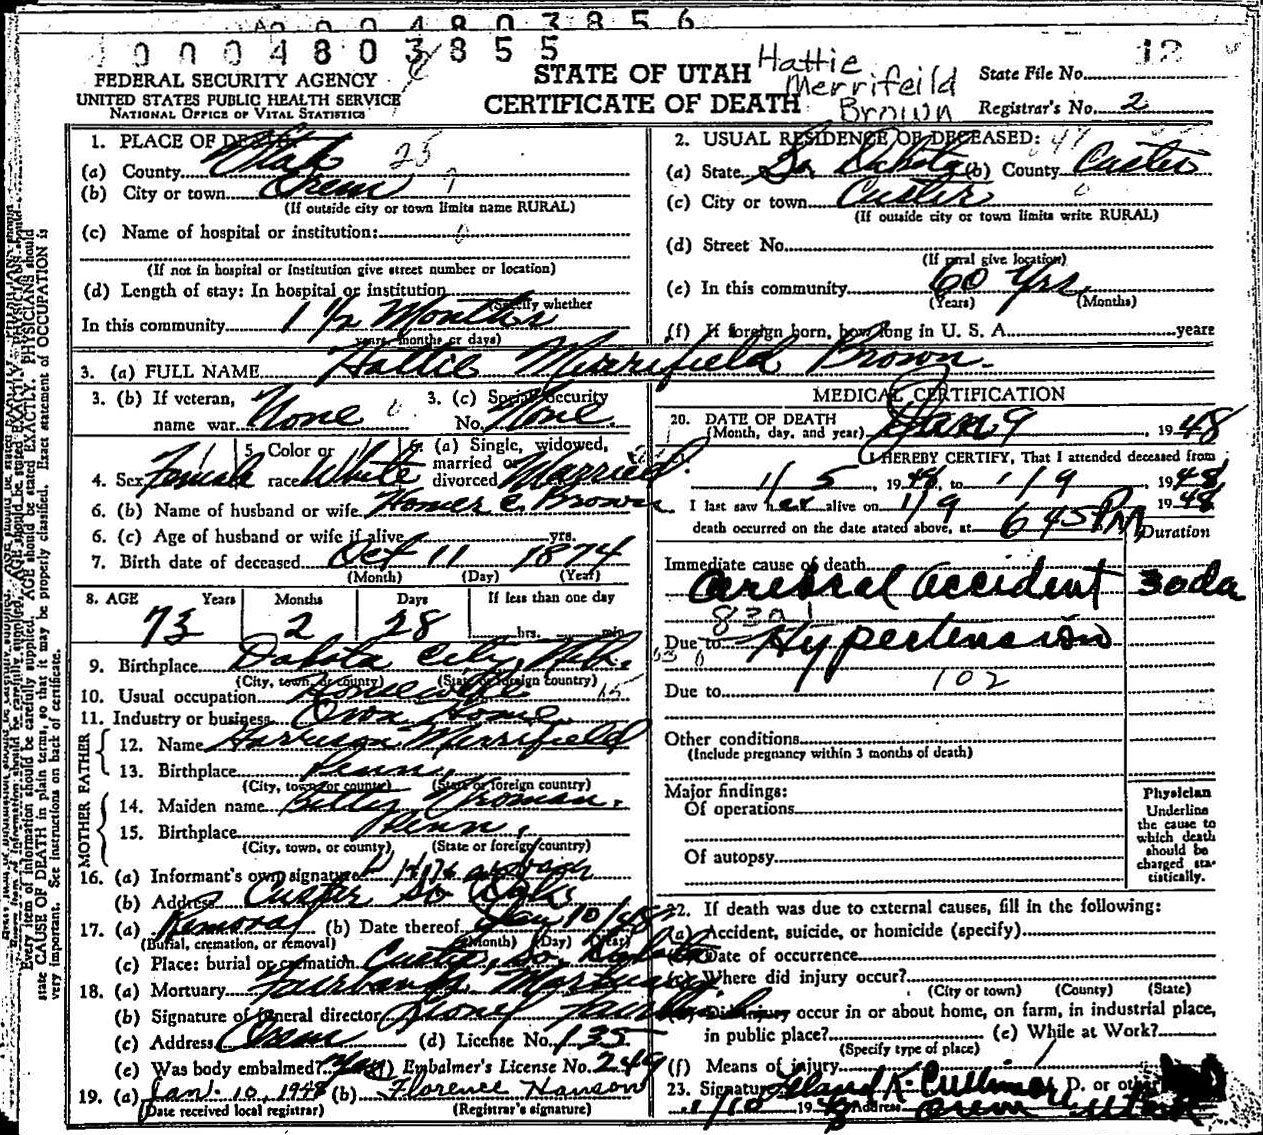 A000480 3856
000480 3855
FEDERAL SECURITY AGENCY
UNITED STATES PUBLIC HEALTH SERVICE
NATIONAL OFFICE OF VITAL STATISTICS
STATE OF UTAH
CERTIFICATE OF DEATH
Hattie
Merrifeild
Brown
State File No. 12
Registrar's No. 2
1. PLACE OF DEATH:
(a) County Utah 25
(b) City or town Orem
(If outside city or town limits name RURAL)
(c) Name of hospital or institution: 0
(If not in hospital or institution give street number or location)
(d) Length of stay: In hospital or institution
(Specify whether
In this community 1 1/2 Months
years, months or days)
2. USUAL RESIDENCE OF DECEASED: 47
(a) State So Dakota (b) County Custer
(c) City or town Custer
(If outside city or town limits write RURAL)
(d) Street No.
(If rural give location)
(e) In this community 60 Yrs.
(Years) (Months)
(f) If foreign born, how long in U. S. A. years
3. (a) FULL NAME Hattie Merrifield Brown.
3. (b) If veteran,
name war None
3. (c) Social Security
No. None.
4. Sex Female
5. Color or
race White
6. (a) Single, widowed,
married or
divorced Married
6. (b) Name of husband or wife Homer C. Brown
6. (c) Age of husband or wife if alive yrs.
7. Birth date of deceased Oct 11 1874
(Month) (Day) (Year)
8. AGE Years Months Days If less than one day
73 2 28 hrs. min.
9. Birthplace Dakota City, Neb.
(City, town, or county) (State or foreign country)
10. Usual occupation Housewife
11. Industry or business Own Home
FATHER
12. Name Harrison Merrifield
13. Birthplace Penn.
(City, town or county) (State or foreign country)
MOTHER
14. Maiden name Betty Vroman.
15. Birthplace Penn.
(City, town, or county) (State or foreign country)
16. (a) Informant's own signature
(b) Address Custer So Dak.
17. (a) Removal (b) Date thereof Jan 10/48
(Burial, cremation, or removal) (Month) (Day) (Year)
(c) Place: burial or cremation Custer, So. Dakota
18. (a) Mortuary Fairbanks Mortuary
(b) Signature of funeral director
(c) Address Orem (d) License No. 135
(e) Was body embalmed? Yes Embalmer's License No. 249
19. (a) Jan. 10, 1948 (b) Florence Hanson
(Date received local registrar) (Registrar's signature)
MEDICAL CERTIFICATION
20. DATE OF DEATH
(Month, day, and year) Jan 9, 1948
I HEREBY CERTIFY, That I attended deceased from
1/5, 1948, to 1/9 1948
I last saw her alive on 1/9 1948
death occurred on the date stated above, at 6 45 PM
Duration
Immediate cause of death
Cerebral accident 3 oda
830 1
Due to Hypertension
Due to 102
Other conditions
(Include pregnancy within 3 months of death)
Major findings:
Of operations
Of autopsy
Physician
Underline
the cause to
which death
should be
charged sta-
tistically.
22. If death was due to external causes, fill in the following:
(a) Accident, suicide, or homicide (specify)
Date of occurrence
Where did injury occur?
(City or town) (County) (State)
Did injury occur in or about home, on farm, in industrial place,
in public place? (e) While at Work?
(Specify type of place)
(f) Means of injury
23. Signature Leland K. Cullimore M. D. or other
1/10 1948 Address Orem Utah
Every item of information should be carefully supplied. AGE should be stated EXACTLY. PHYSICIANS should
state CAUSE OF DEATH in plain terms, so that it may be properly classified. Exact statement of OCCUPATION is
very important. See instructions on back of certificate.